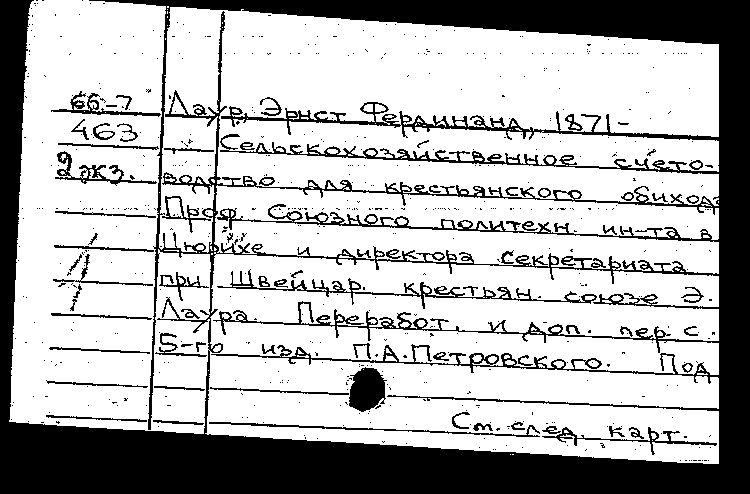 66-7 Лаур, Эрнст Фердинанд, 1871-
463 Сельскохозяйственное счето-
2 экз. водство для крестьянского обихода
Проф. Союзного политехн. ин-та в
Цюрихе и директора секретариата
при Швейцар. крестьян. союзе Э.
Лаура. Переработ. и доп. пер. с
5-го изд. П.А.Петровского. Под
См. след. карт.